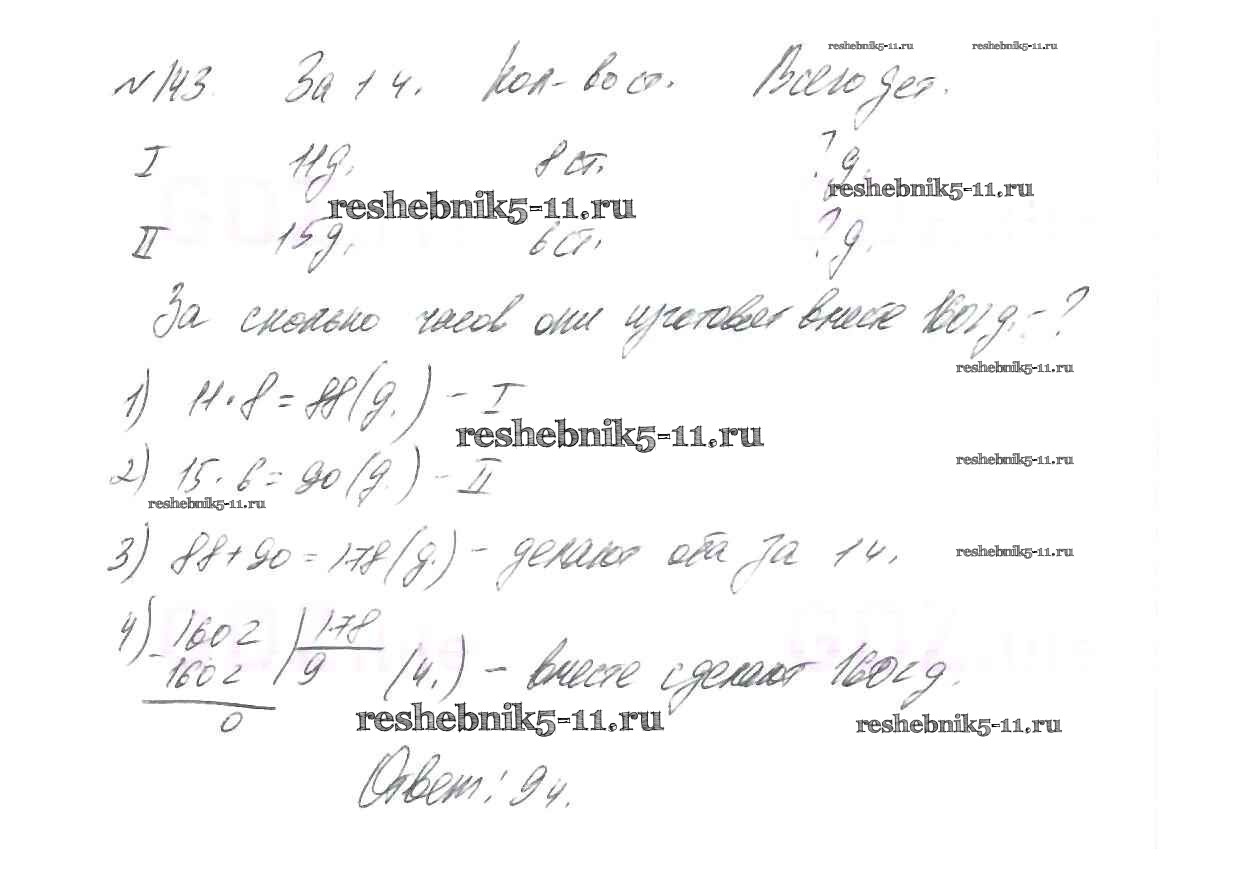 reshebnik5-11.ru reshebnik5-11.ru
№143. За 1 ч. Кол-во ст. Всего дет.
I 11 д. 8 ст. ? д.
reshebnik5-11.ru reshebnik5-11.ru
II 15 д. 6 ст. ? д.
За сколько часов они изготовят вместе 1602 д. - ?
reshebnik5-11.ru
1) 11 · 8 = 88 (д.) - I
reshebnik5-11.ru
2) 15 · 6 = 90 (д.) - II
reshebnik5-11.ru
reshebnik5-11.ru
3) 88 + 90 = 178 (д.) - делают оба за 1 ч.
reshebnik5-11.ru
4) 1602 | 178
- 1602 | 9 (ч.) - вместе сделают 1602 д.
0
reshebnik5-11.ru reshebnik5-11.ru
Ответ: 9 ч.